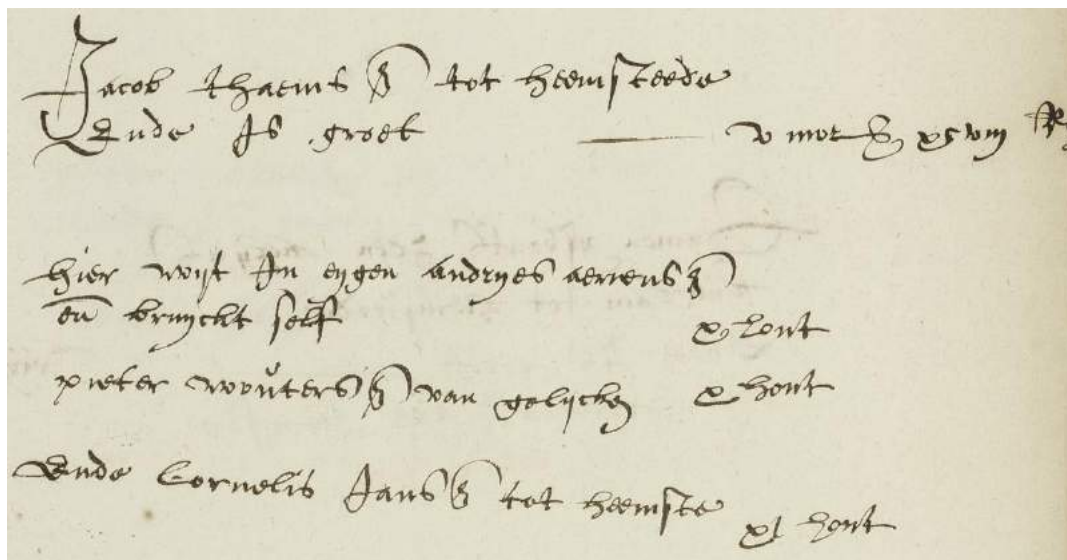 Jacob thaems z tot heemsteede
Ende Is groet v mor
hier wyt In eygen andryes aeriens z
en bruyckt self x hont
pieter wouters z van gelycken x hont
Ende Cornelis Jans z tot heemste xi hont